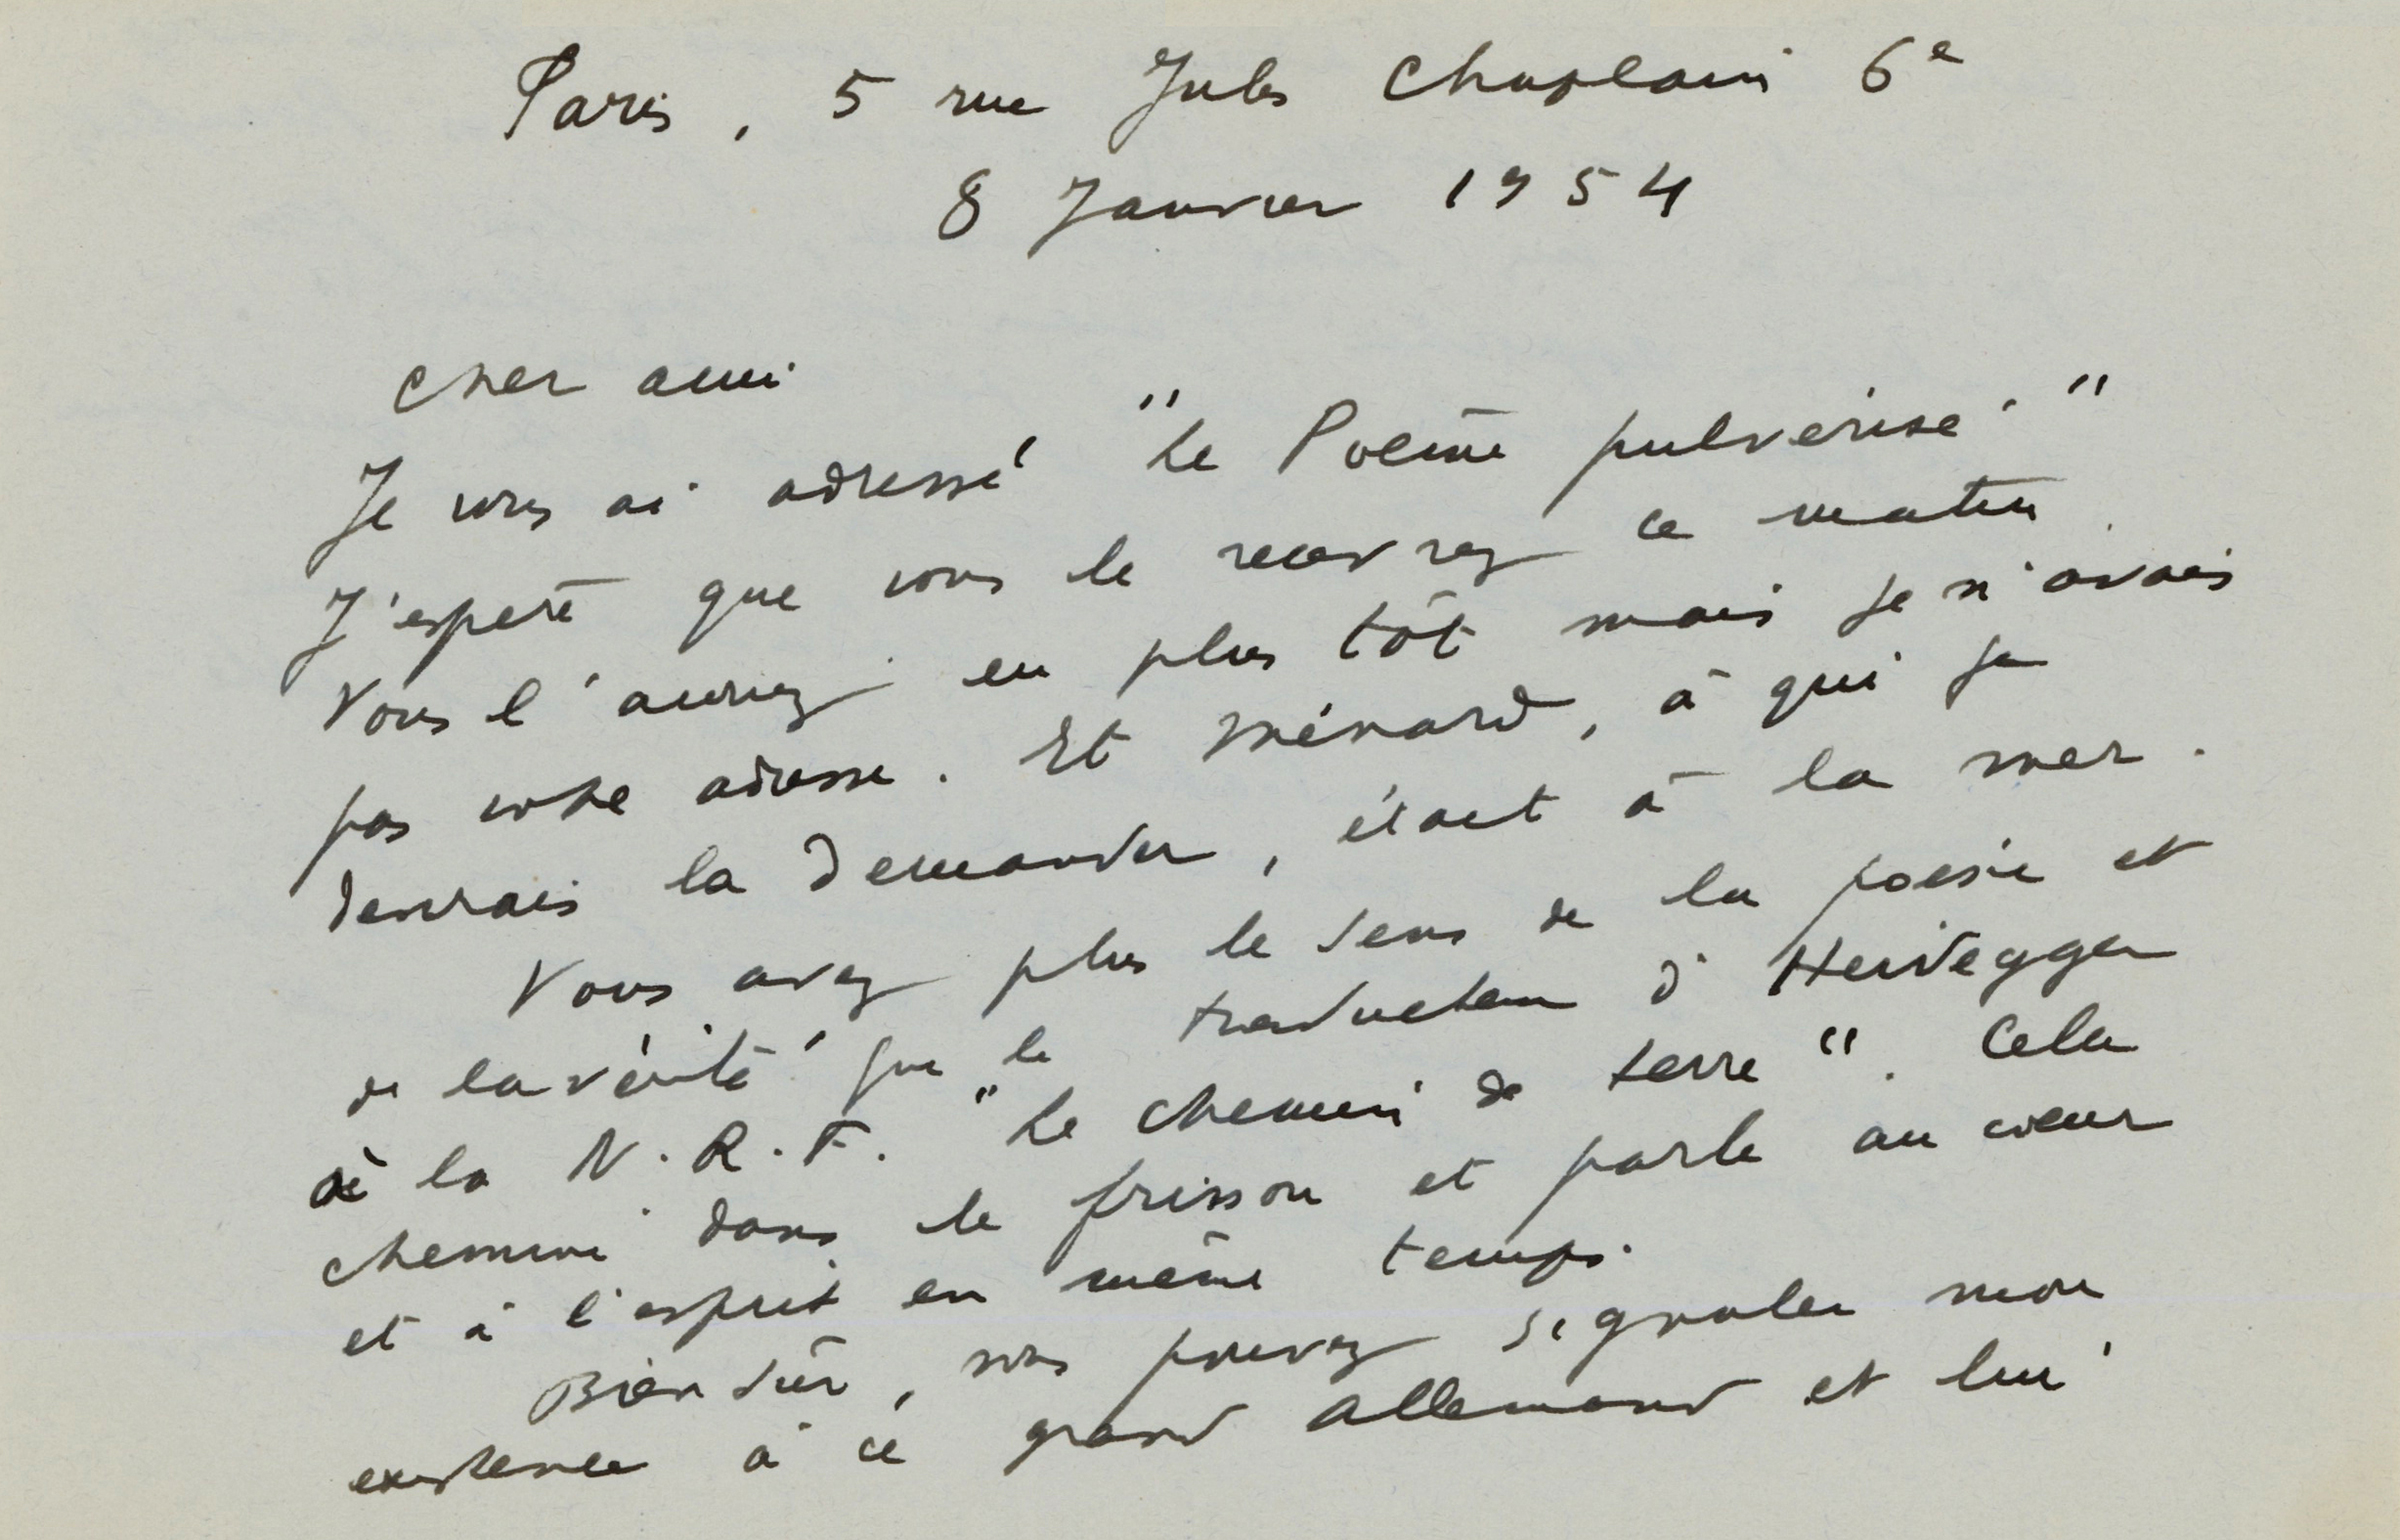 Paris, 5 rue Jules Chaplain 6e
8 Janvier 1954
Cher ami
Je vous ai adressé "Le Poème pulvérisé"
J'espère que vous le recevrez ce matin.
Vous l'auriez eu plus tôt mais je n'avais
pas votre adresse. Et Ménard, à qui je
devrais la demander, était à la mer.
Vous avez plus le sens de la poésie et
de la vérité que le traducteur d'Heidegger
à la N.R.F. "Le chemin de terre". Cela
chemine dans le frisson et parle au cœur
et à l'esprit en même temps.
Bien sûr, vous pouvez signaler mon
existence à ce grand Allemand et lui